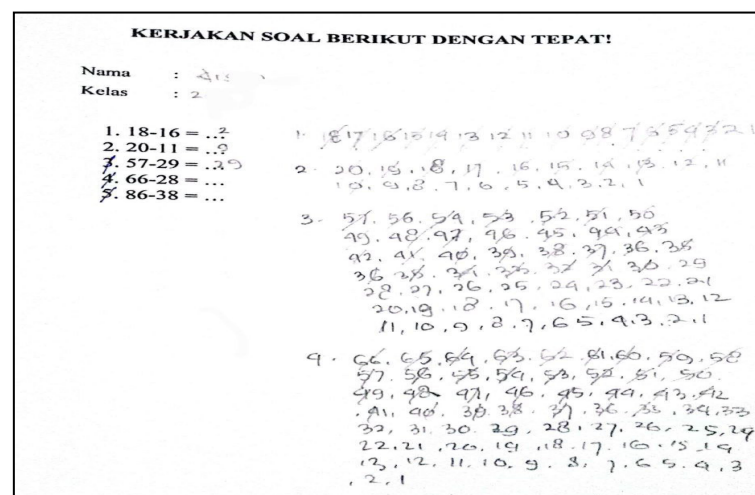 KERJAKAN SOAL BERIKUT DENGAN TEPAT!
Nama :
Kelas : 2
1. 18-16 = ...2
2. 20-11 = ...9
3. 57-29 = ...29
4. 66-28 = ...
5. 86-38 = ...
1. 18 17 16 15 14 13 12 11 10 9 8 7 6 5 4 3 2 1
2. 20, 19, 18, 17, 16, 15, 14, 13, 12, 11
10, 9, 8, 7, 6, 5, 4, 3, 2, 1
3. 57, 56, 54, 53, 52, 51, 50
49, 48, 47, 46, 45, 44, 43
42, 41, 40, 39, 38, 37, 36, 35
36 35, 34, 33, 32 31 30, 29
28, 27, 26, 25, 24, 23, 22, 21
20, 19, 18, 17, 16, 15, 14, 13, 12
11, 10, 9, 8, 7, 6 5, 4, 3, 2, 1
4. 66, 65, 64, 63, 62, 61, 60, 59, 58
57, 56, 55, 54, 53, 52, 51, 50
49, 48 47, 46, 45, 44, 43, 42
, 41, 40, 39, 38, 37, 36, 35, 34, 33
32, 31, 30, 29, 28, 27, 26, 25, 24
22, 21, 20, 19, 18, 17, 16, 15, 14
13, 12, 11, 10, 9, 8, 7, 6 5, 4, 3
, 2, 1